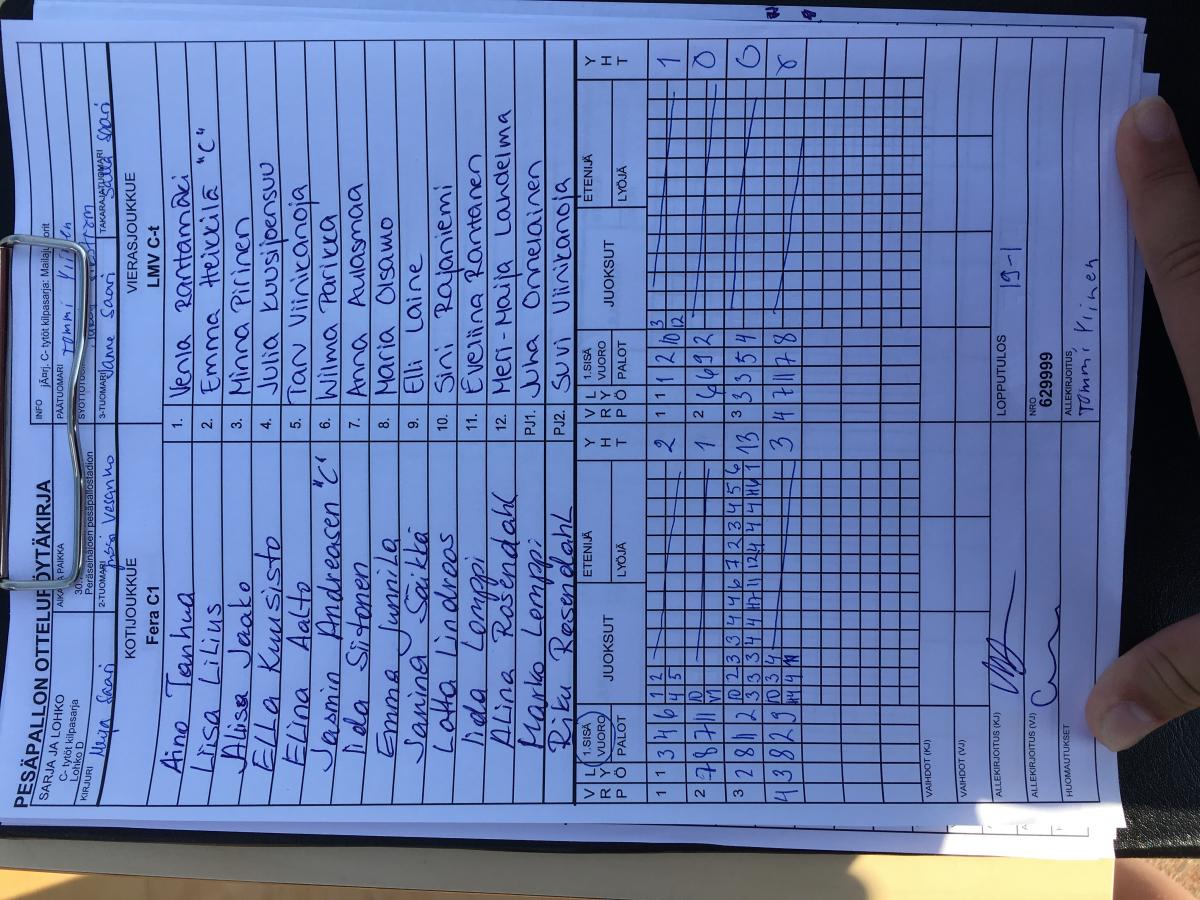 PESÄPALLON OTTELUPÖYTÄKIRJA
SARJA JA LOHKO
C- tytöt kilpasarja
Lohko D
PAIKKA
Peräseinäjoen pesäpallostadion
INFO
C- tytöt kilpasarja:
PÄÄTUOMARI
Tommi
KIRJURI
Saari
2-TUOMARI
Vesanko
3-TUOMARI
Janne Saari
TAKARAJATUOMARI
Salla Saari
KOTIJOUKKUE
Fera C1
VIERASJOUKKUE
LMV C-t
Aino Tanhua
1. Venla Rantamäki
Liisa Lilius
2. Emma Heikkilä "C"
Alisa Jaako
3. Minna Pirinen
Ella Kuusisto
4. Julia Kuusijoensuu
Elina Aalto
5. Taru Viinikanoja
Jasmin Andreasen "C"
6. Wilma Parikka
Iida Siitonen
7. Anna Aulasmaa
Emma Junnila
8. Maria Olsamo
Janina Säikkä
9. Elli Laine
Lotta Lindroos
10. Sini Rajaniemi
Iida Lemppi
11. Eveliina Rantanen
Alina Rosendahl
12. Meri-Maija Landelma
Marko Lemppi
PJ1. Juha Onnelainen
Riku Rosendahl
PJ2. Suvi Viinikanoja
VRP LYÖ 1.SISÄ VUORO PALOT JUOKSUT ETENIJÄ LYÖJÄ YHT
VRP LYÖ 1.SISÄ VUORO PALOT JUOKSUT ETENIJÄ LYÖJÄ YHT
1 1 3 4 6 1 2 2
4 5
1 1 1 2 10 3 1
12
2 7 8 7 11 10 1
2 6 6 9 2 0
3 2 8 11 2 10 2 3 3 4 4 6 7 2 3 4 5 6 13
3 3 3 5 4 0
4 3 8 2 9 10 3 4 3
4 4 7 11 7 8
VAIHDOT (KJ)
VAIHDOT (VJ)
ALLEKIRJOITUS (KJ)
LOPPUTULOS
19-1
ALLEKIRJOITUS (VJ)
NRO
629999
HUOMAUTUKSET
ALLEKIRJOITUS,
Tommi